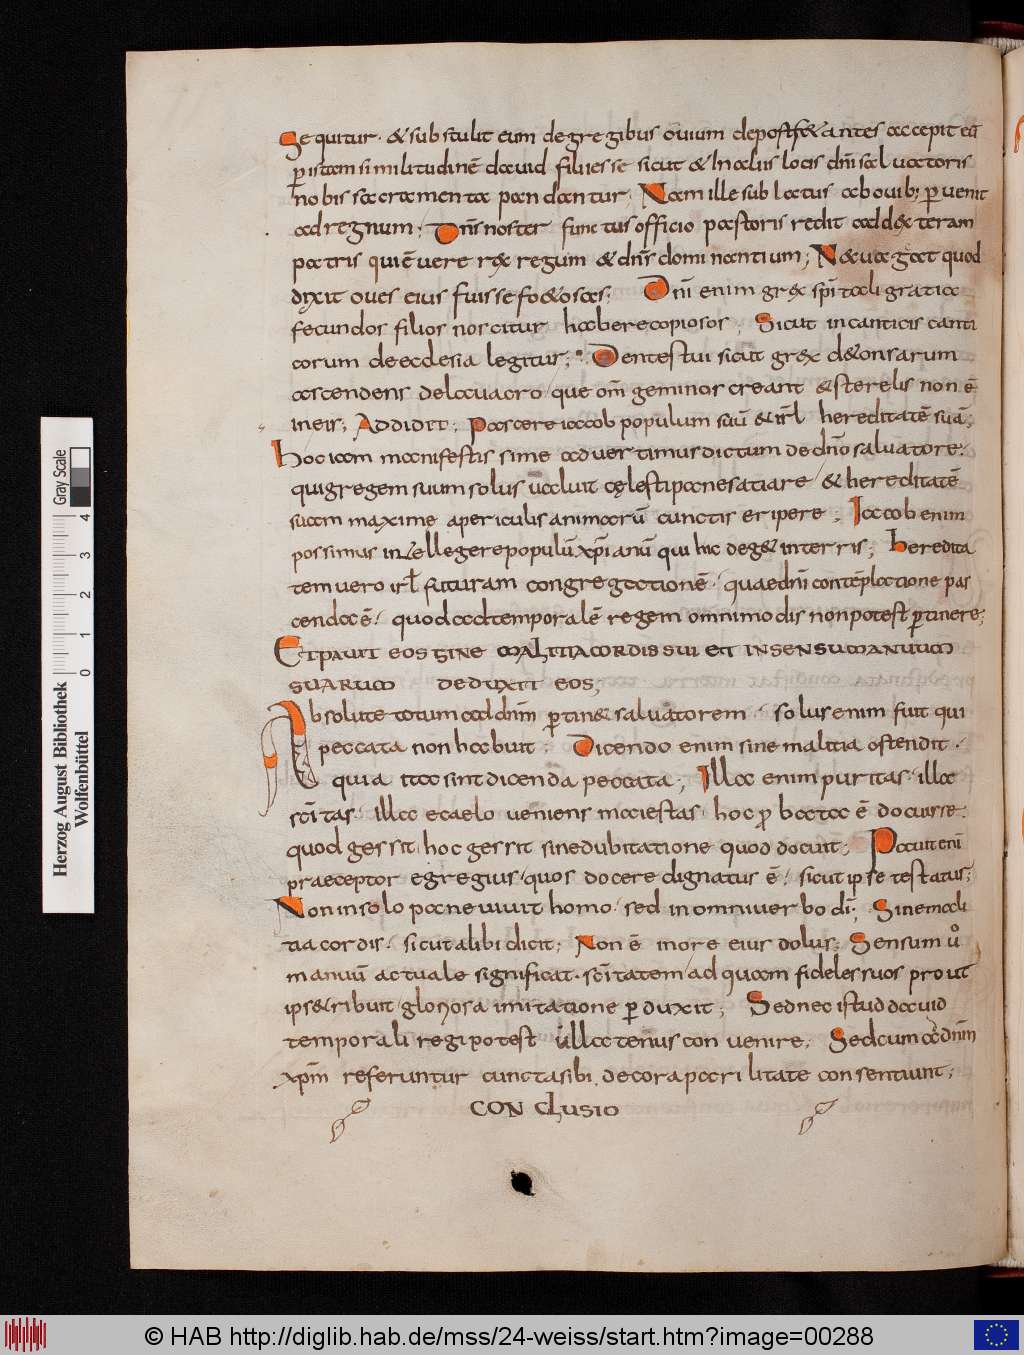 Sequitur · & substulit eum de gregibus ovium de post f&antes accepit eū
p istam similitudinē david filii esse sicut & In aliis locis dn̄i salvatoris
nobis sacramenta pandantur; Nam ille sublatus ab ovib; pervenit
ad regnum; Dn̄s noster functus officio pastoris redit ad dexteram
patris qui ē vere rex regum & dn̄s dominantium; N& vagæt quod
dixit oves eius fuisse fo&osas; Dn̄i enim grex spi tali gratia
fecundos filios noscitur habere copiosos; Sicut in canticis canti
corum de ecclesia legitur; Dentes tui sicut grex d&onsarum
ascendens de lavacro que om̄ geminos creant & sterelis non ē
in eis; Addidit; Pascere iacob populum suū & isrl hereditatē suā;
hoc iam manifestissime advertimus dictum de dn̄o salvatore;
qui gregem suum solus valuit cęlesti pane satiare & hereditatē
suam maxime a periculis animarū cunctis eripere; Iacob enim
possimus intellegere populū xp̄ianū qui hic deg& in terris; heredita
tem vero isrl futuram congregationē · quae dn̄i contēplatione pas
cenda ē · quod ad temporalē regem omnimodis non potest ptinere;
Et pavit eos sine malitia cordis sui et in sensu manuum
suarum deduxit eos;
Absolute totum ad dn̄m ptin& salvatorem · solus enim fuit qui
peccata non habuit; Dicendo enim sine malitia ostendit ·
quia ita sint dicenda peccata; Illa enim puritas · illa
sc̄itas · illa e caelo veniens maiestas · hoc pbata ē docuisse ·
quod gessit · hoc gessit sine dubitatione quod docuit; Pavit eni
praeceptor egregius quos docere dignatus ē · sicut ipse testatus;
Non in solo pane vivit homo · sed in omni verbo di; Sine mali
tia cordis · sicut alibi dicit; Non ē in ore eius dolus; Sensum ůo
manuū actuale significat · sc̄itatem ad quam fideles suos prout
ips& ribuit gloriosa imitatione pduxit; Sed nec istud david
temporali regi potest ullatenus convenire; Sed cum ad dn̄m
xp̄m referuntur cuncta sibi decora parilitate consentiunt;
CONCLUSIO
Herzog August Bibliothek
Wolfenbüttel
Gray Scale
0 1 2 3 4
© HAB http://diglib.hab.de/mss/24-weiss/start.htm?image=00288